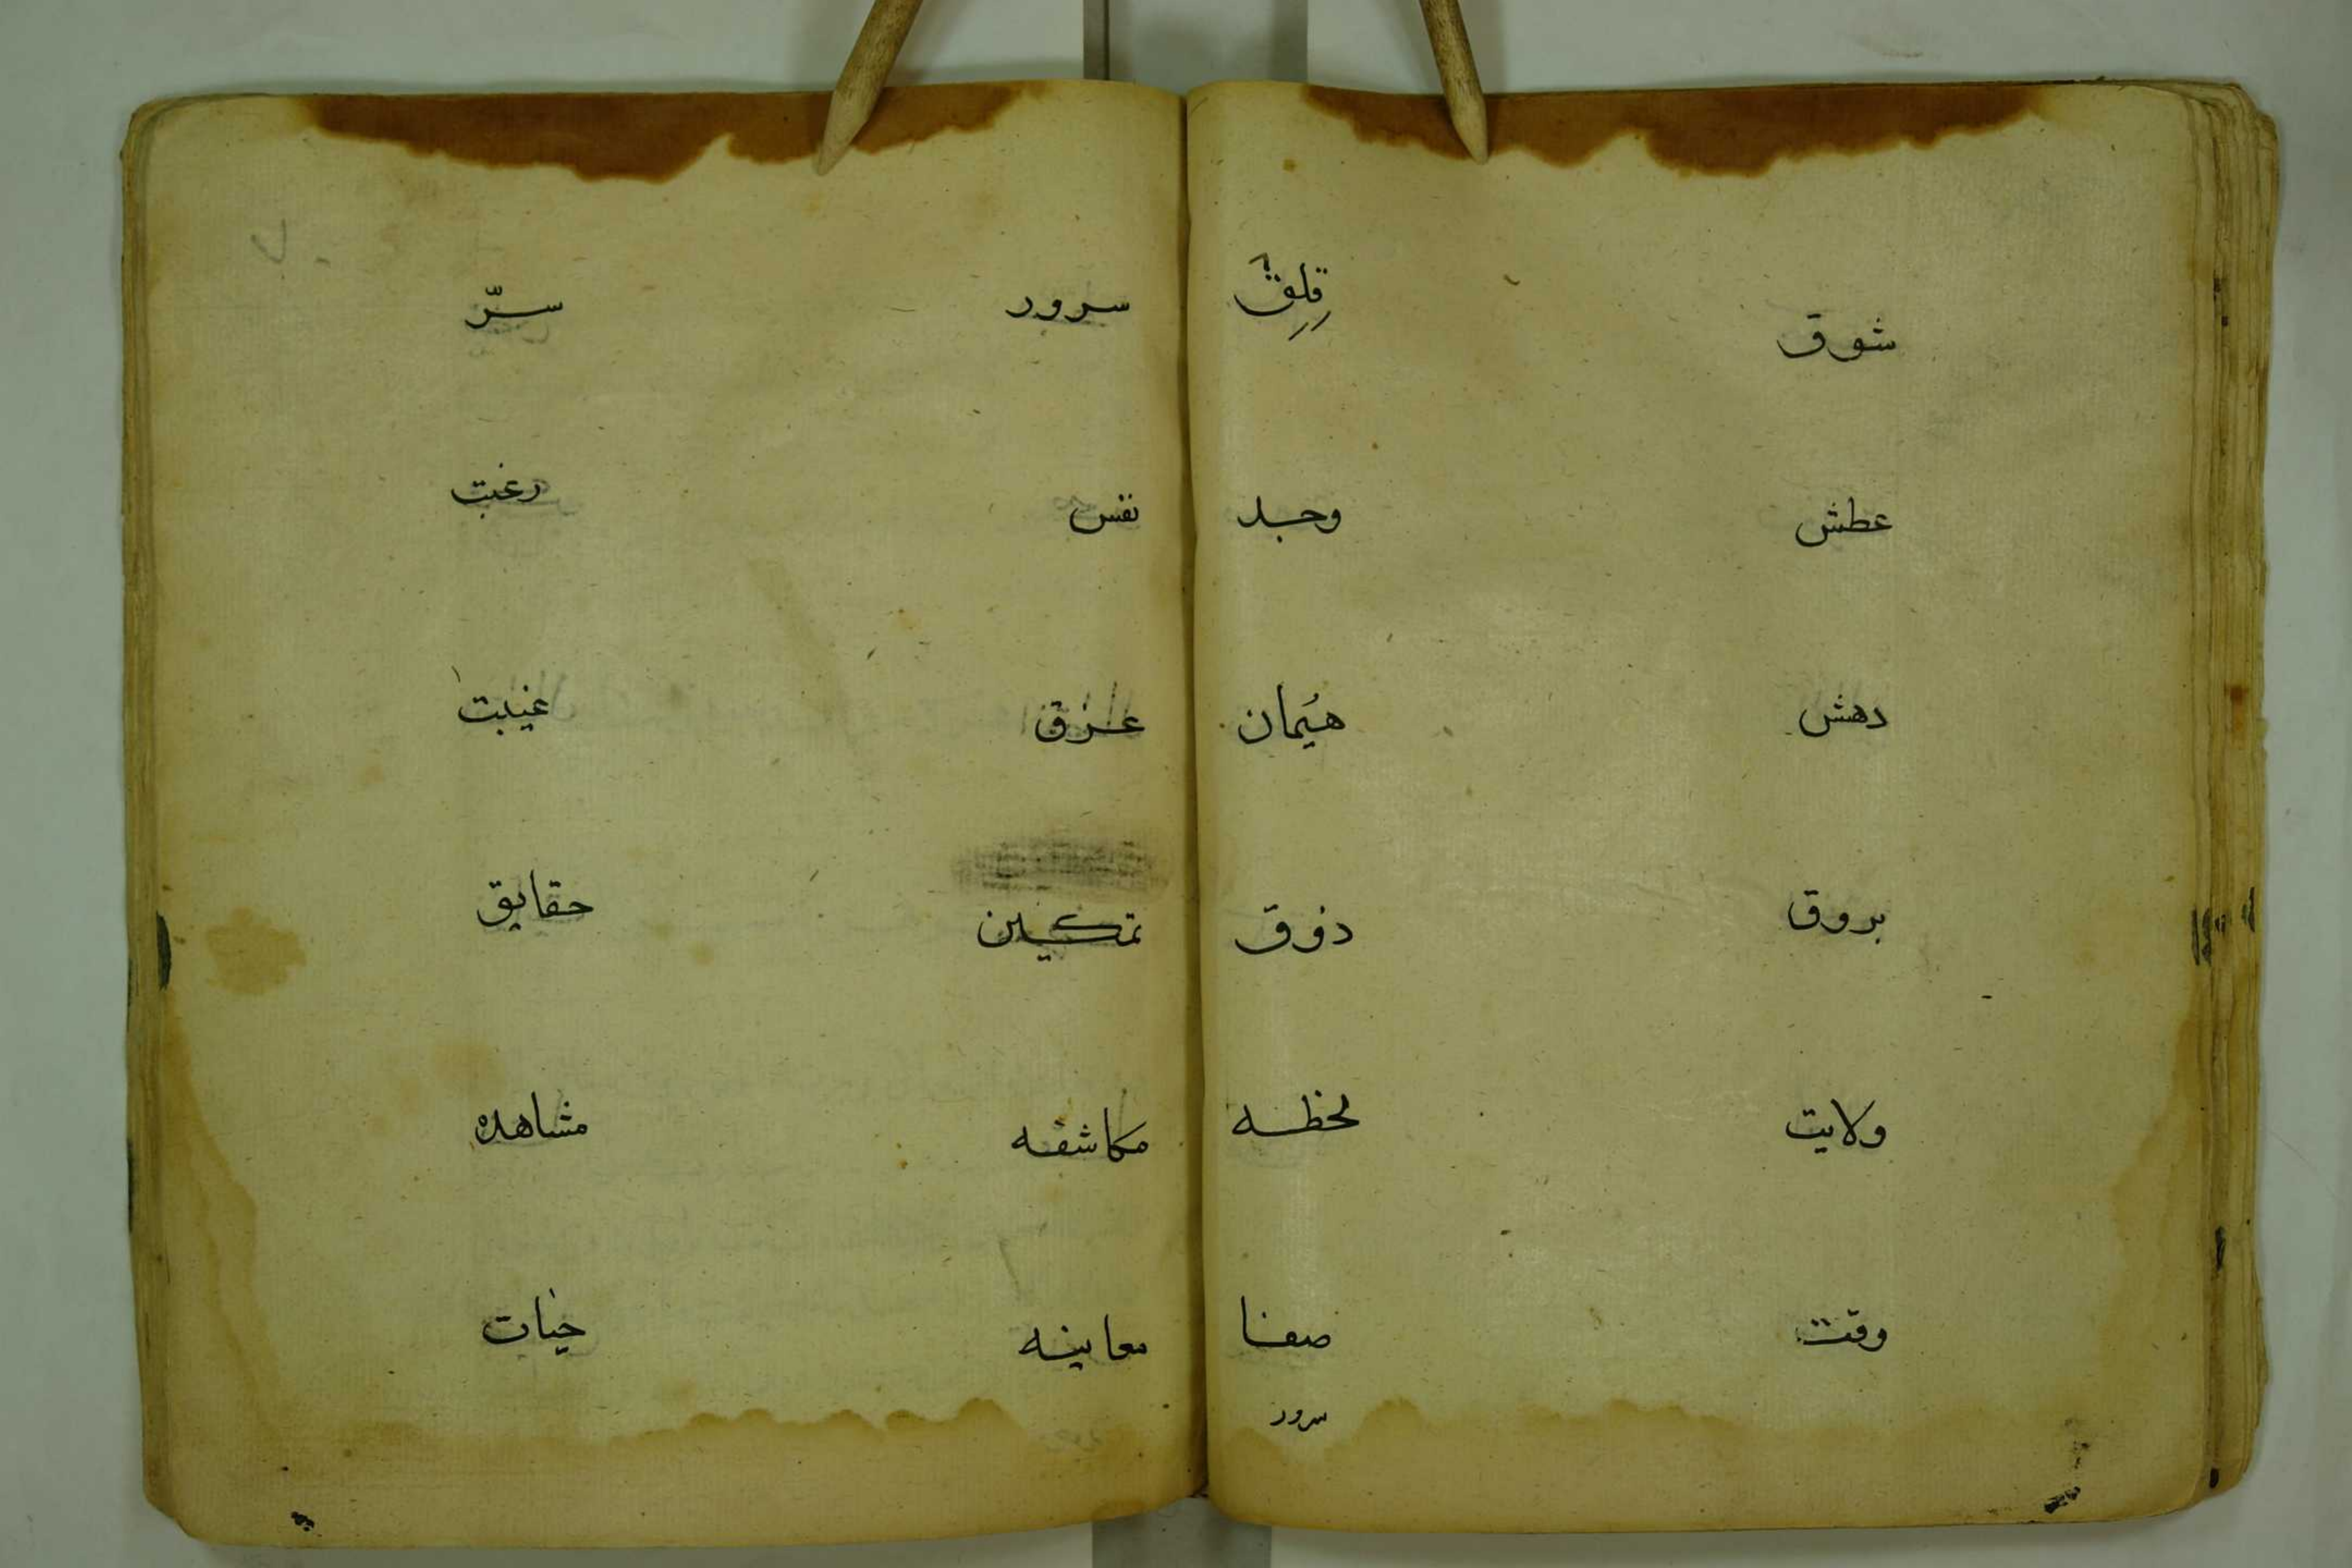 شوق قِلِق
عطش وجد
دهش هَيَمان
بروق ذوق
ولايت لحظه
وقت صفا
سرور
سرور سرّ
نفس رغبت
غرق غيبت
تمكين حقايق
مكاشفه مشاهده
معاينه حيات